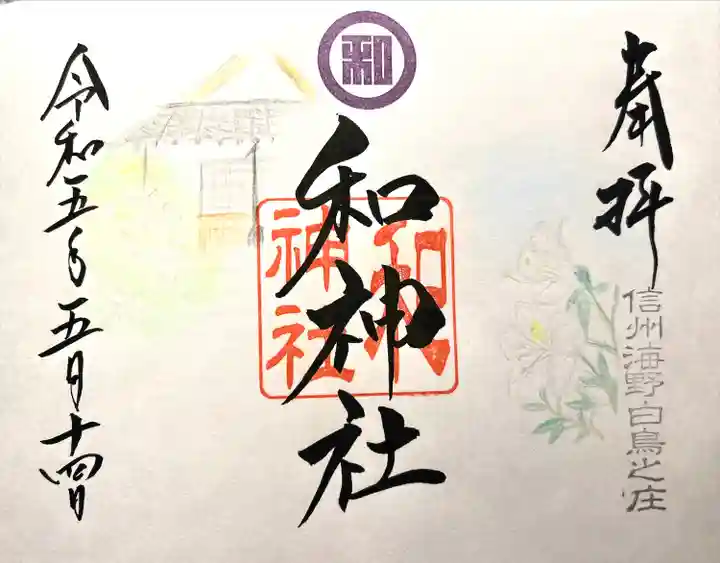 奉拝
信州海野白鳥之庄
和
和神社
和神社
令和五年五月十四日